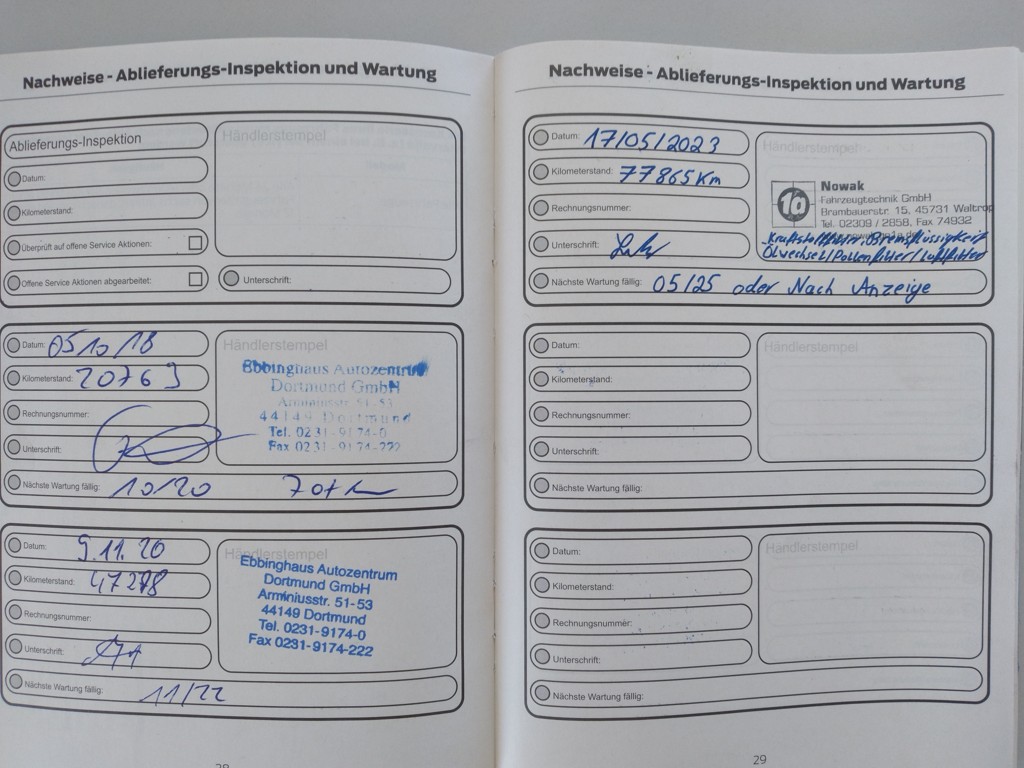 Nachweise - Ablieferungs-Inspektion und Wartung
Ablieferungs-Inspektion
Datum:
Kilometerstand:
Überprüft auf offene Service Aktionen:
Offene Service Aktionen abgearbeitet:
Händlerstempel
Unterschrift:
Datum: 05 10 18
Kilometerstand: 20769
Rechnungsnummer:
Unterschrift:
Händlerstempel
Ebbinghaus Autozentrum
Dortmund GmbH
Arminiusstr. 51-53
44149 Dortmund
Tel. 0231-9174-0
Fax 0231-9174-222
Nächste Wartung fällig: 10/20
Datum: 9.11.20
Kilometerstand: 47278
Rechnungsnummer:
Unterschrift:
Händlerstempel
Ebbinghaus Autozentrum
Dortmund GmbH
Arminiusstr. 51-53
44149 Dortmund
Tel. 0231-9174-0
Fax 0231-9174-222
Nächste Wartung fällig: 11/22
Nachweise - Ablieferungs-Inspektion und Wartung
Datum: 17/05/2023
Kilometerstand: 77865 Km
Rechnungsnummer:
Unterschrift:
Händlerstempel
1a
Nowak
Fahrzeugtechnik GmbH
Brambauerstr. 15, 45731 Waltrop
Tel. 02309 / 2858, Fax 74932
Kraftstofffilter, Bremsflüssigkeit
Ölwechsel/Pollenfilter/Luftfilter
Nächste Wartung fällig: 05/25 oder Nach Anzeige
Datum:
Kilometerstand:
Rechnungsnummer:
Unterschrift:
Händlerstempel
Nächste Wartung fällig:
Datum:
Kilometerstand:
Rechnungsnummer:
Unterschrift:
Händlerstempel
Nächste Wartung fällig:
29